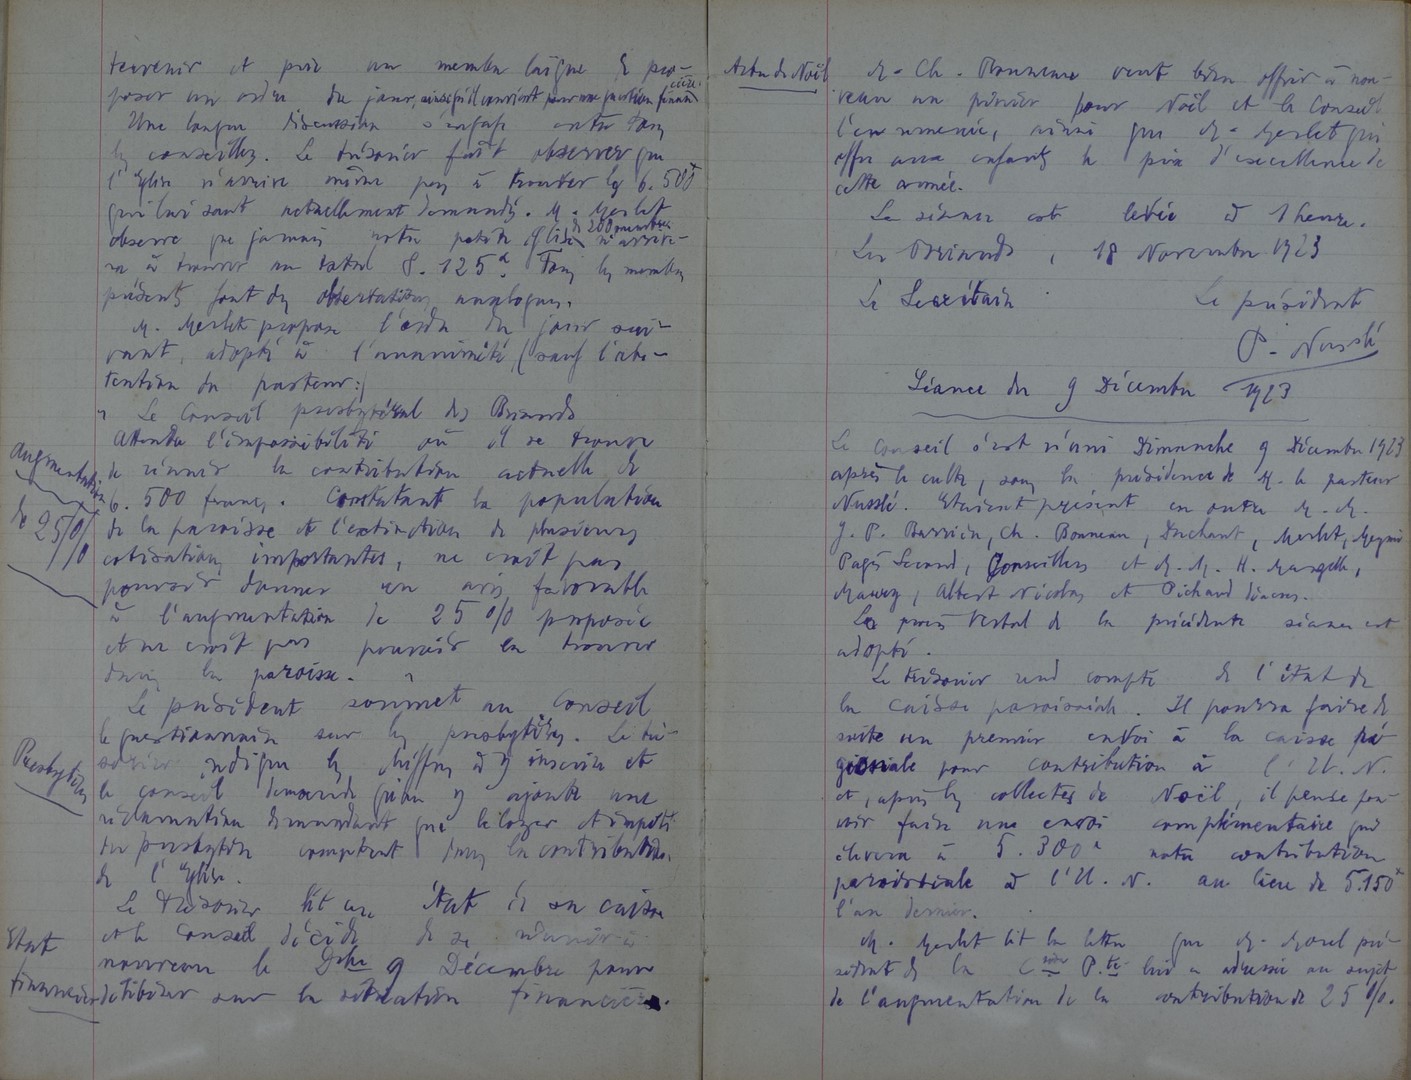 tervenir et prie un membre laïque de pro-
poser un ordre du jour, ainsi qu'il convient pour une question financière.
Une longue discussion s'engage entre tous
les conseillers. Le trésorier fait observer que
l'Eglise n'arrive même pas à trouver les 6.500f
qui lui sont actuellement demandés. M. Merlet
observe que jamais notre petite Eglise de 200 membres n'arrive-
ra à trouver un total 8.125f. Tous les membres
présents font des observations analogues.
M. Merlet propose l'ordre du jour sui-
vant, adopté à l'unanimité, (sauf l'abs-
tention du pasteur:)
" Le Conseil presbytéral des
Attendu l'impossibilité où il se trouve
de réunir la contribution actuelle de
6.500 francs. Constatant la population
de la paroisse et l'extinction de plusieurs
cotisations importantes, ne croit pas
pouvoir donner un avis favorable
à l'augmentation de 25 0/0 proposée
et ne croit pas pouvoir la trouver
dans la paroisse. "
Le président soumet au Conseil
le questionnaire sur les presbytères. Le tré-
sorier indique les chiffres à y inscrire et
le conseil demande qu'on y ajoute une
réclamation demandant que le loyer et impôts
du presbytère comptent dans la contribution
de l'Eglise.
Le Trésorier lit un état de sa caisse
et le Conseil décide de se réunir à
nouveau le Dche 9 Décembre pour
délibérer sur la situation financière.
Augmentation
de 25 0/0
Presbytères
Etat
financier
Arbre de Noël
M. Ch. Bonneau veut bien offrir à nou-
veau un pour Noël et le Conseil
l'en remercie, ainsi que M. Merlet qui
offre aux enfants le prix d'excellence de
cette année.
La séance est levée à 1 heure.
Les , 18 Novembre 1923
Le Secrétaire Le président
P. Nusslé
Séance du 9 Décembre 1923
Le Conseil s'est réuni Dimanche 9 Décembre 1923
après le culte, sous la présidence de M. le pasteur
Nusslé. Etaient présent en outre M. M.
J. P. Barrière, Ch. Bonneau, Duchant, Merlet,
Pagès Second, Conseillers et M. M. H.
Albert Nicolas et Pichard diacres.
Le procès Verbal de la précédente séance est
adopté.
Le trésorier rend compte de l'état de
la caisse paroissiale. Il pourra faire de
suite un premier envoi à la caisse ré-
gionale pour contribution à l'U. N.
et, après les collectes de Noël, il pense pou-
voir faire une envoi complémentaire qui
élèvera à 5.300f notre contribution
paroissiale à l'U. N. au lieu de 5.150f
l'an dernier.
M. Merlet lit la lettre que M. Morel pré-
sident de la lui a adressée au sujet
de l'augmentation de la contribution de 25 0/0.